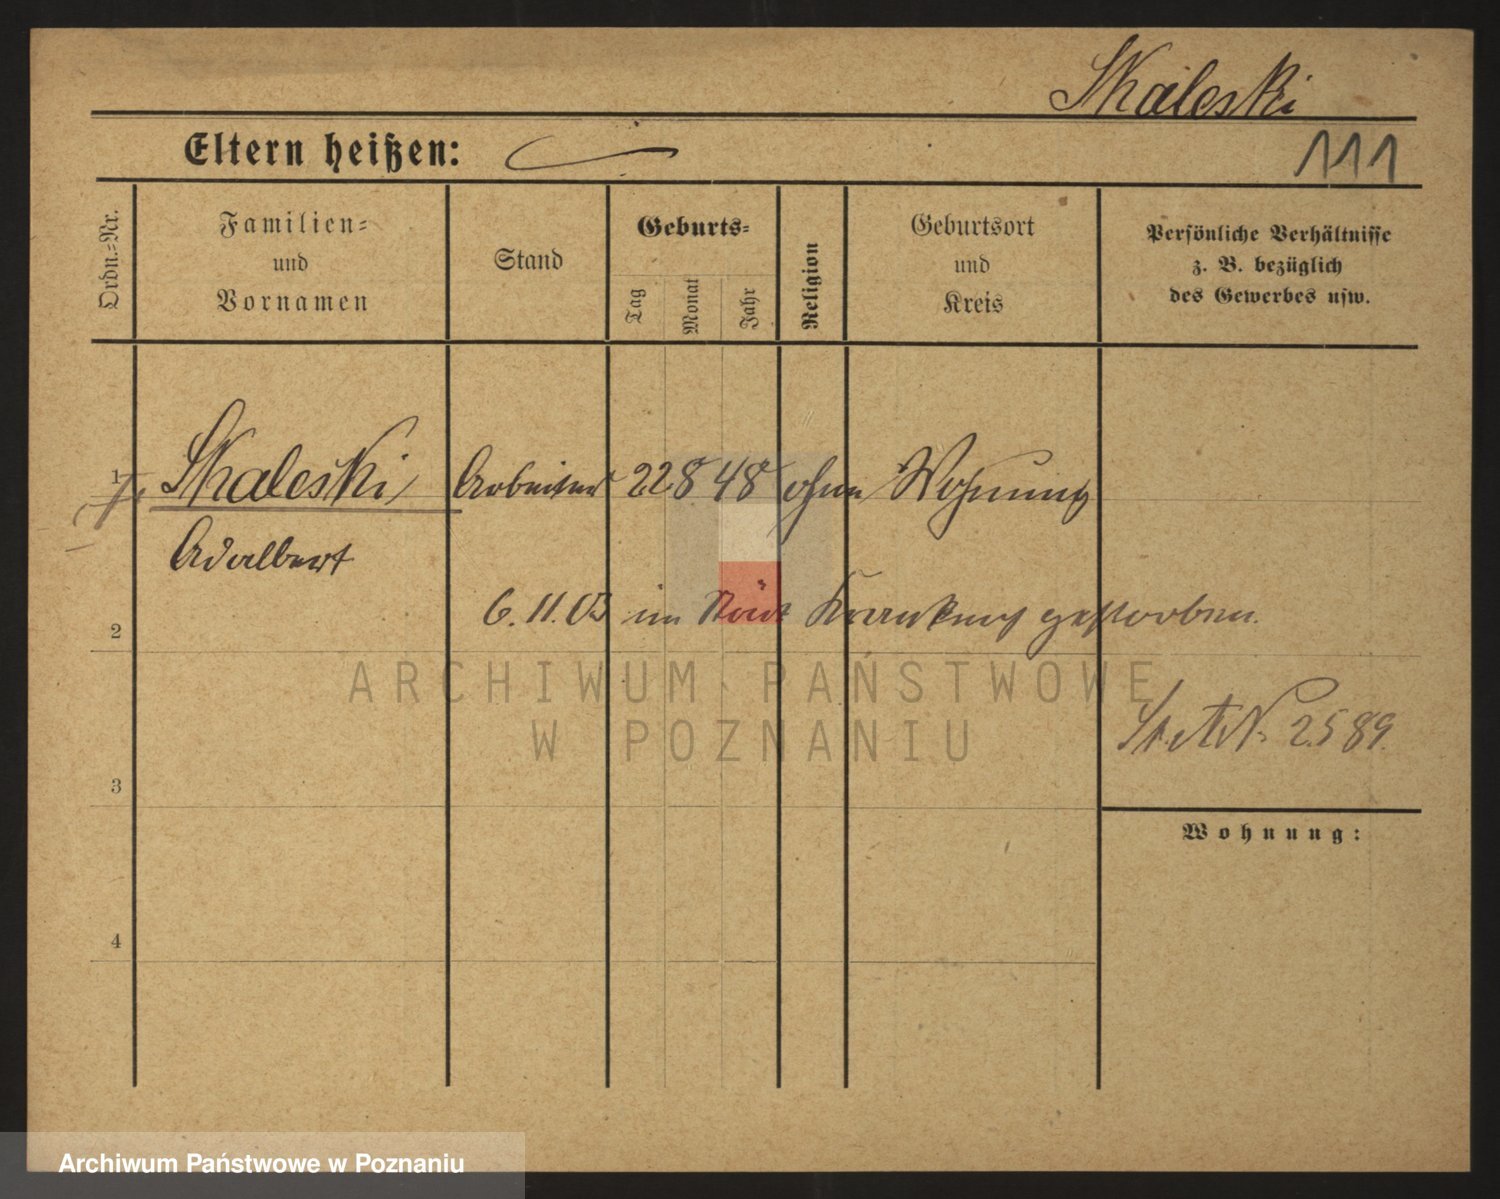 Skaleski
Eltern heißen:
111
Ordn.-Nr.
Familien-
und
Vornamen
Stand
Geburts-
Tag
Monat
Jahr
Religion
Geburtsort
und
Kreis
Persönliche Verhältnisse
z. B. bezüglich
des Gewerbes usw.
1 Skaleski Arbeiter 22 8 48 ohne Wohnung
Adalbert
6.11.03 im Städt Krankenh gestorben.
2
ARCHIWUM PAŃSTWOWE
W POZNANIU
St. A. N. 2589.
3
Wohnung:
4
Archiwum Państwowe w Poznaniu